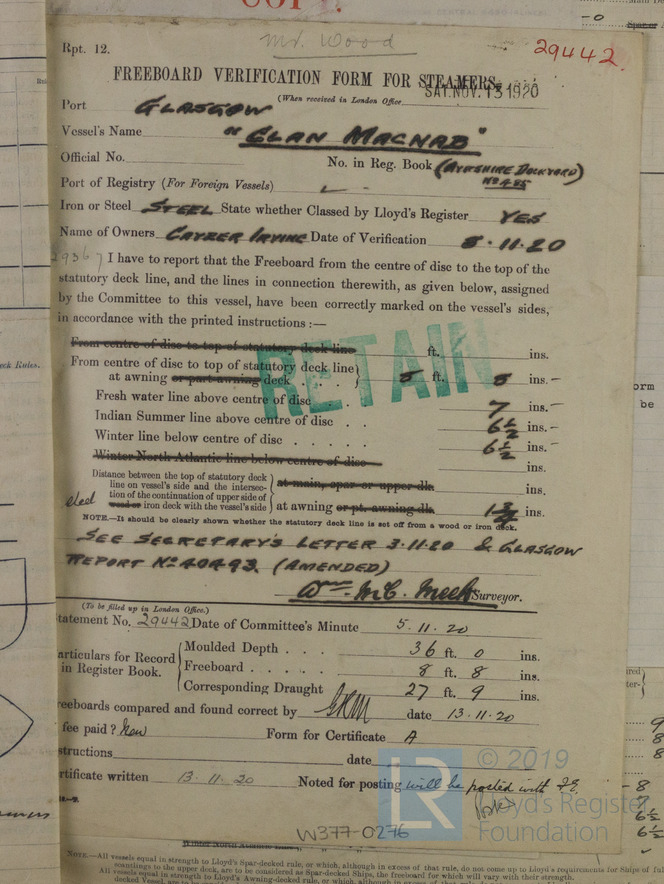 COPY.
Mr. Wood
Rpt. 12.
29442.
FREEBOARD VERIFICATION FORM FOR STEAMERS.
(When received in London Office SAT. NOV. 13 1920
Port GLASGOW
Vessel's Name "CLAN MACNAB"
Official No. No. in Reg. Book (AYRSHIRE DOCKYARD)
No 485
Port of Registry (For Foreign Vessels)
Iron or Steel STEEL State whether Classed by Lloyd's Register YES
Name of Owners CAYZER IRVINE Date of Verification 8.11.20
I have to report that the Freeboard from the centre of disc to the top of the
statutory deck line, and the lines in connection therewith, as given below, assigned
by the Committee to this vessel, have been correctly marked on the vessel's sides,
in accordance with the printed instructions :—
From centre of disc to top of statutory deck line ft. ins.
From centre of disc to top of statutory deck line
at awning or part awning deck . . 8 ft. 8 ins.
Fresh water line above centre of disc . . 7 ins.
Indian Summer line above centre of disc . . 6½ ins.
Winter line below centre of disc . . . . . 6½ ins.
Winter North Atlantic line below centre of disc ins.
RETAIN
Distance between the top of statutory deck
line on vessel's side and the intersec- at main, spar or upper dk. ins.
tion of the continuation of upper side of
wood or iron deck with the vessel's side at awning or pt. awning dk. ins.
NOTE.—It should be clearly shown whether the statutory deck line is set off from a wood or iron deck.
SEE SECRETARY'S LETTER 3.11.20 & GLASGOW
REPORT No 40493. (AMENDED)
Wm. McC. Meek Surveyor.
(To be filled up in London Office.)
tatement No. 29442 Date of Committee's Minute 5.11.20
articulars for Record Moulded Depth . . . 36 ft. 0 ins.
in Register Book. Freeboard . . . . 8 ft. 8 ins.
Corresponding Draught 27 ft. 9 ins.
reeboards compared and found correct by date 13.11.20
fee paid? New Form for Certificate A
structions date
rtificate written 13.11.20 Noted for posting will be posted with
© 2019
LR Lloyd's Register
Foundation
W377-0276
Winter North Atlantic
NOTE.—All vessels equal in strength to Lloyd's Spar-decked rule, or which, although in excess of that rule, do not come up to Lloyd's requirements for Ships of
scantlings to the upper deck, are to be considered as Spar-decked Ships, the freeboard for which will vary with their strength.
All vessels equal in strength to Lloyd's Awning-decked rule, or which, although in excess of that rule